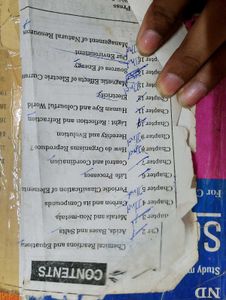 CONTENTS
Chemical Reactions and Equations
Chapter 2 Acids Bases and Salts
Chapter 3 Metals and Non-metals
Chapter 4 Carbon and Compounds
Chapter 5 Periodic Classification Elements
Chapter 6 Life Processes
Chapter 7 Control and Coordination
Chapter 8 How do Organisms Reproduce
Chapter 9 Heredity and Evolution
Chapter Light : Reflection and Refraction
Chapter Human Eye and Colourful World
Chapter 12 Electricity
Chapter 13 Magnetic Effects of Electric Current
Chapter 14 Sources of Energy
Chapter 15 Our Environment
Management of Natural Resources
Press
ND
Study
S
For C